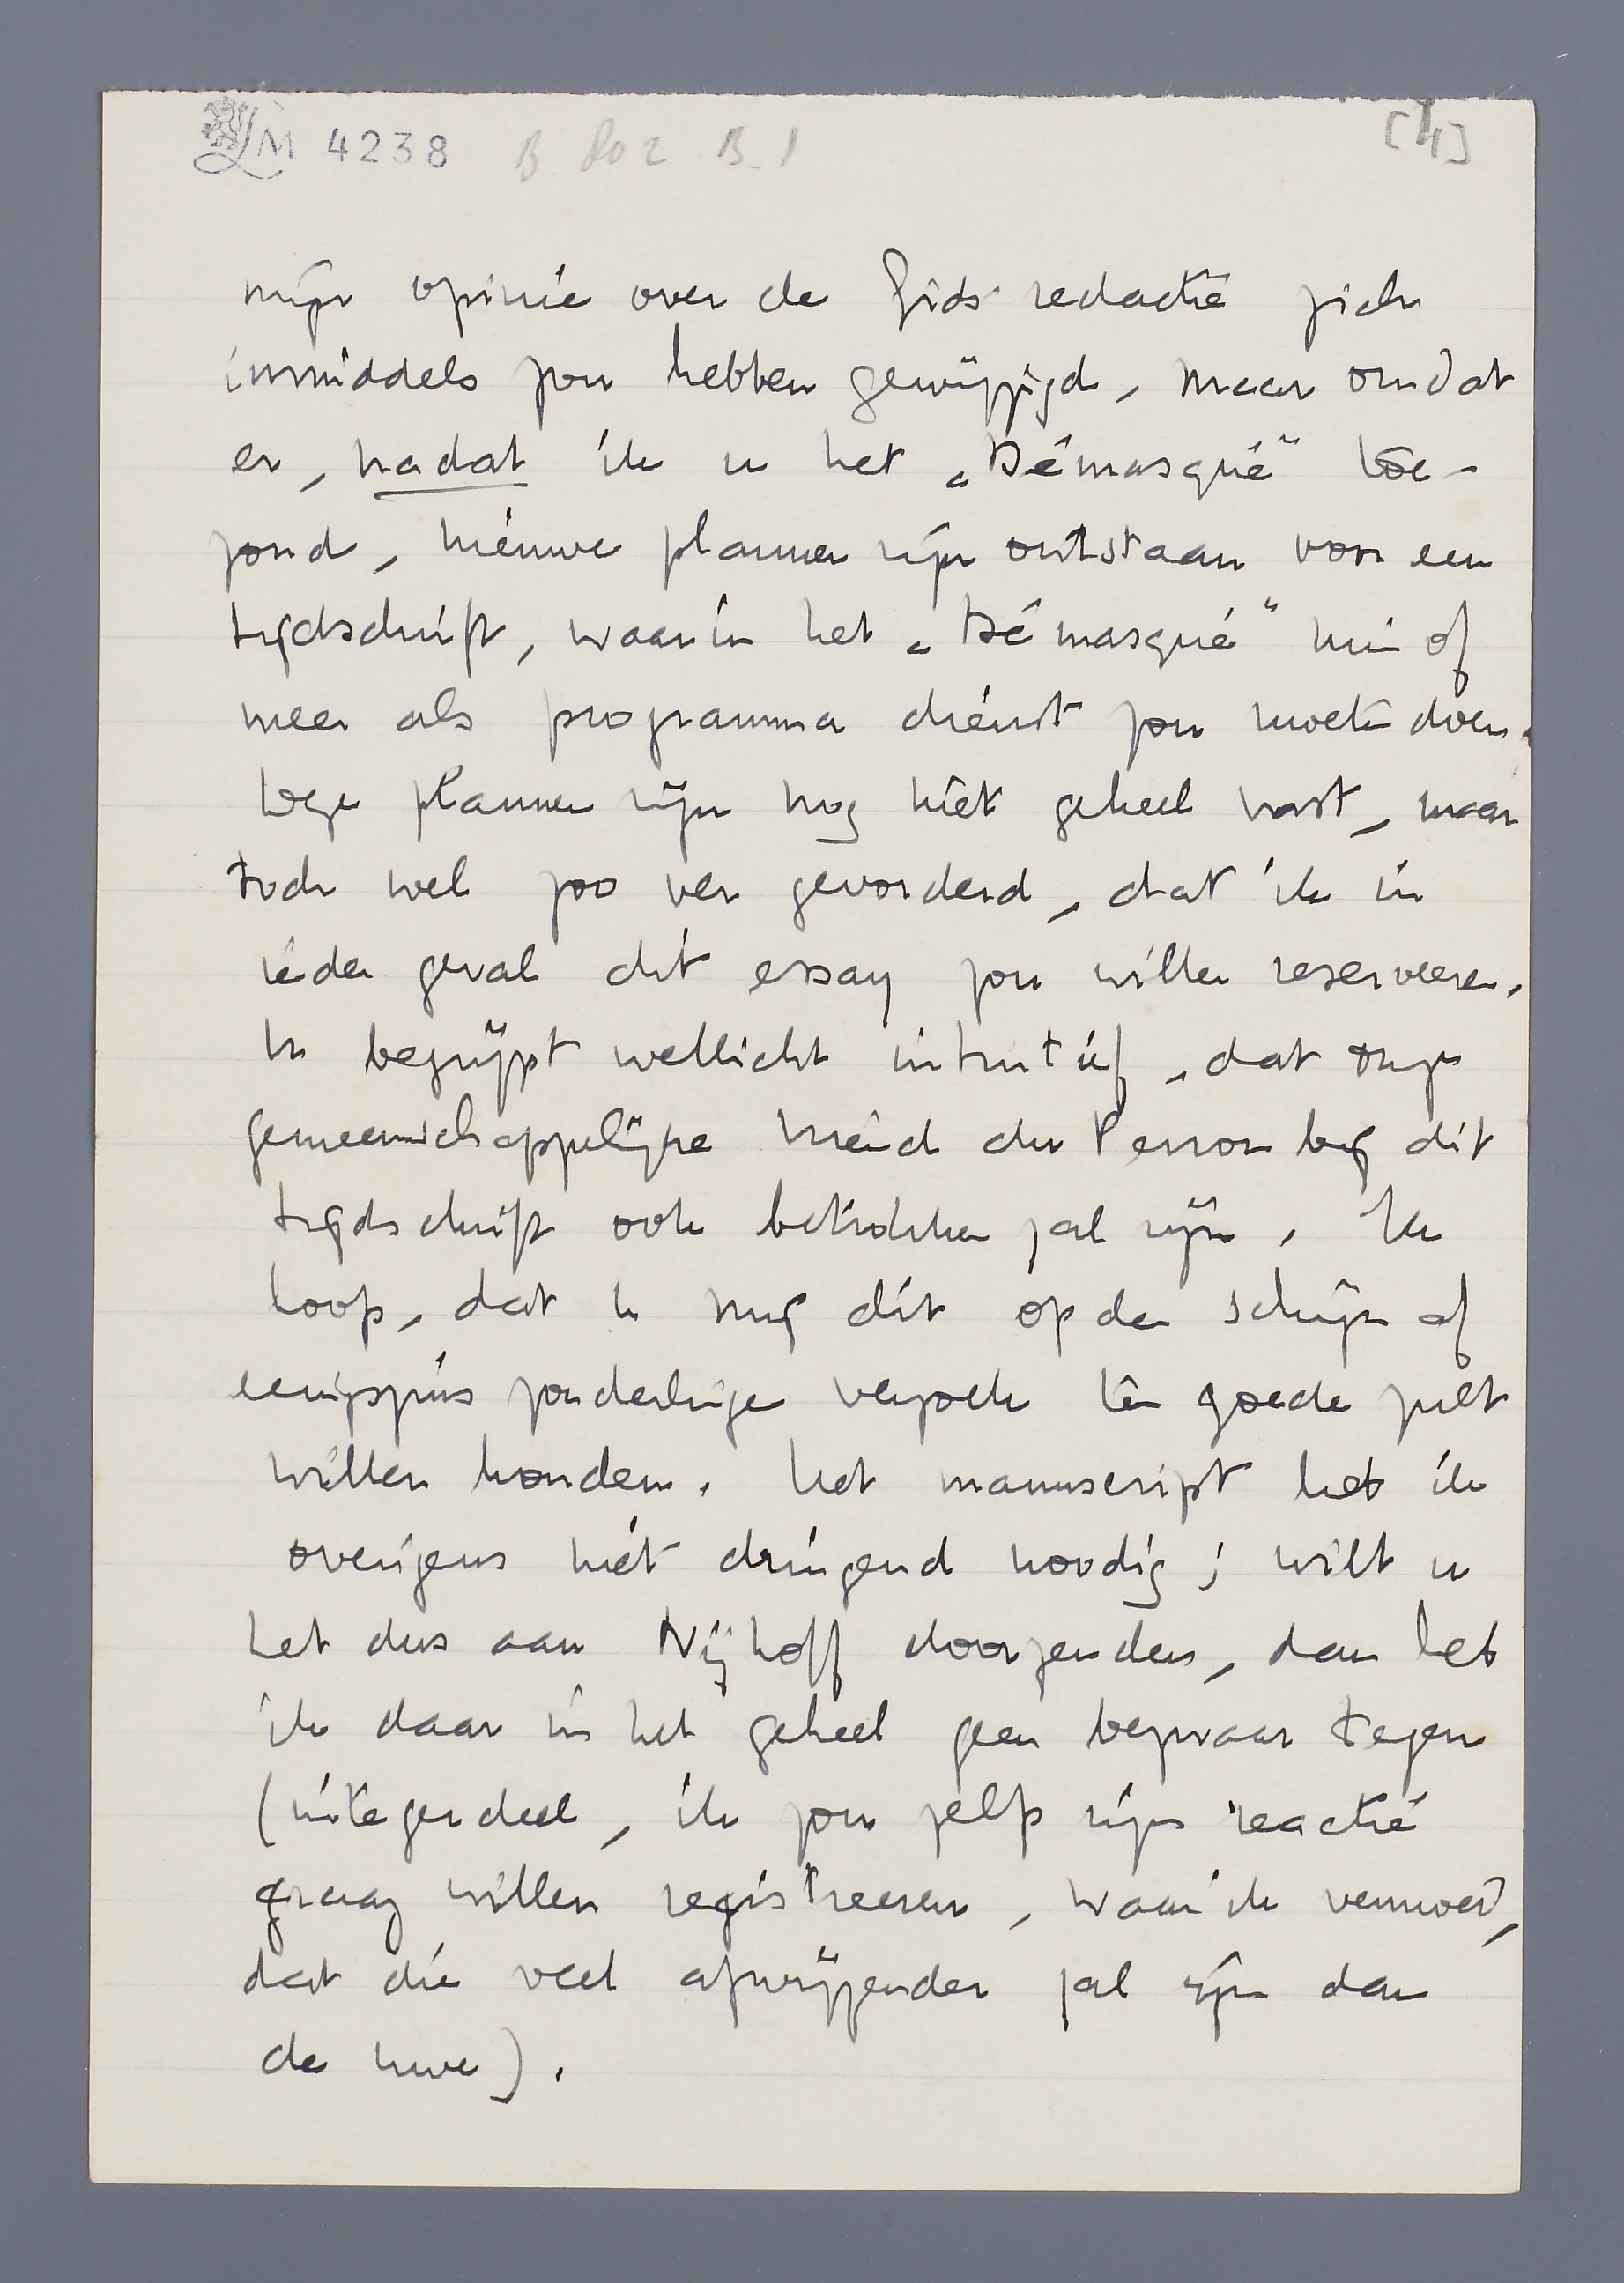 LM 4238 B 802 B.1 [4]
mijn opinie over de Gids redactie zich
inmiddels zou hebben gewijzigd, maar omdat
er, nadat ik u het „Démasqué" toe-
zond, nieuwe plannen zijn ontstaan voor een
tijdschrift, waarin het „Démasqué" min of
meer als programma dienst zou moeten doen.
Deze plannen zijn nog niet geheel vast, maar
toch wel zoo ver gevorderd, dat ik in
ieder geval dit essay zou willen reserveeren.
U begrijpt wellicht intuïtief, dat onze
gemeenschappelijke vriend du Perron bij dit
tijdschrift ook betrokken zal zijn. Ik
hoop, dat u mij dit op den schijn af
eenigszins zonderlinge verzoek ten goede zult
willen houden. Het manuscript heb ik
overigens niet dringend noodig; wilt u
het dus aan Nijhoff doorzenden, dan heb
ik daar in het geheel geen bezwaar tegen
(integendeel, ik zou zelfs zijn reactie
graag willen registreeren, waar ik vermoed,
dat die veel afwijzender zal zijn dan
de uwe).